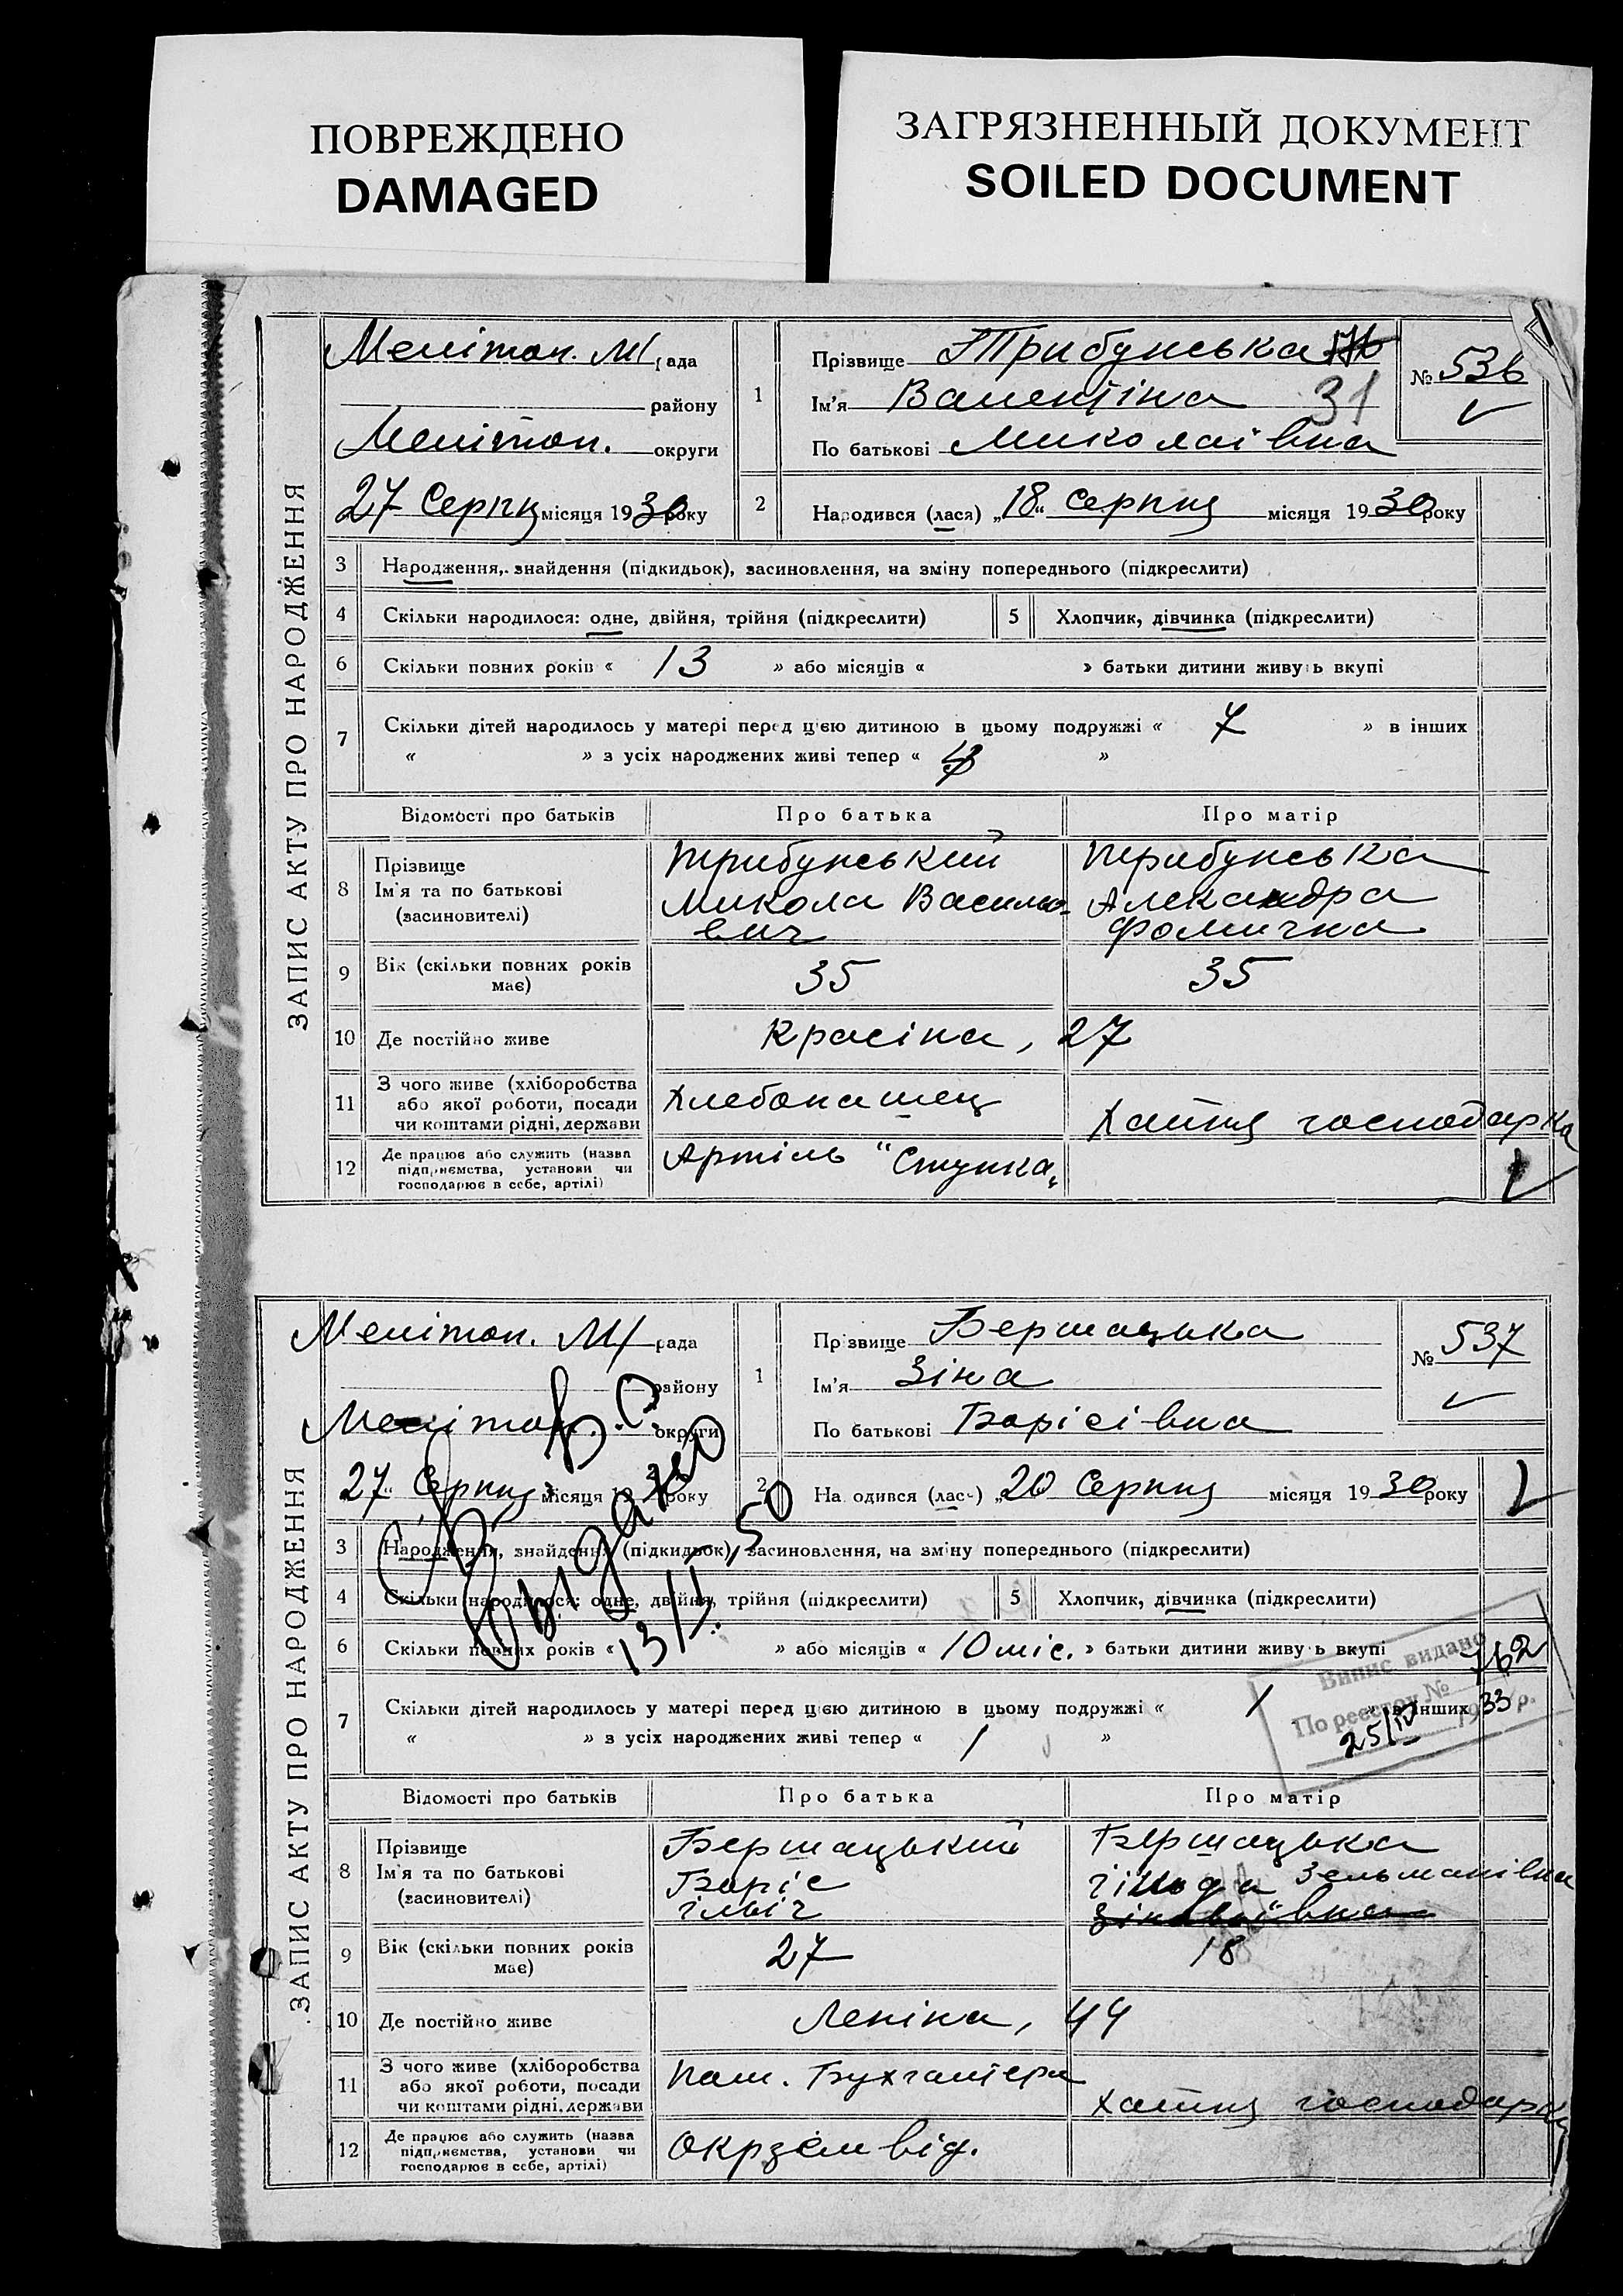 ПОВРЕЖДЕНО
DAMAGED
ЗАГРЯЗНЕННЫЙ ДОКУМЕНТ
SOILED DOCUMENT
ЗАПИС АКТУ ПРО НАРОДЖЕННЯ
Мелітоп. М/рада
району
Мелітоп. округи
27 Серпня місяця 1930 року
1
Прізвище Трибунська
Ім'я Валентіна 31
По батькові Миколаівна
№ 536
2
Народився (лася) „18“ серпня місяця 1930 року
3 Народження, знайдення (підкидьок), засиновлення, на зміну попереднього (підкреслити)
4 Скільки народилося: одне, двійня, трійня (підкреслити) 5 Хлопчик, дівчинка (підкреслити)
6 Скільки повних років « 13 » або місяців « » батьки дитини живуть вкупі
7 Скільки дітей народилось у матері перед цією дитиною в цьому подружжі « 7 » в інших
« » з усіх народжених живі тепер « »
Відомості про батьків Про батька Про матір
8 Прізвище Ім'я та по батькові (засиновителі)
Трибунський Микола Васильович
Трибунська Александра Фомична
9 Вік (скільки повних років має) 35 35
10 Де постійно живе Красіна, 27
11 З чого живе (хліборобства або якої роботи, посади чи коштами рідні, держави
Хлебопашец Хатня господарка
12 Де працює або служить (назва підприємства, установи чи господарює в себе, артілі)
Артіль "Ступка"
ЗАПИС АКТУ ПРО НАРОДЖЕННЯ
Мелітоп. М/рада
району
Мелітоп. округи
27 Серпня місяця 1930 року
1
Прізвище Бершацька
Ім'я Зіна
По батькові Борісівна
№ 537
2
Народився (лась) „20 Серпня місяця 1930 року
Выдано
13/I 50
3 Народження, знайдення (підкидьок), засиновлення, на зміну попереднього (підкреслити)
4 Скільки народилося: одне, двійня, трійня (підкреслити) 5 Хлопчик, дівчинка (підкреслити)
6 Скільки повних років « » або місяців « 10 міс. » батьки дитини живуть вкупі
Випис видано
По реестру № 762
25/IV 1933 р.
7 Скільки дітей народилось у матері перед цією дитиною в цьому подружжі « 1 » в інших
« » з усіх народжених живі тепер « 1 »
Відомості про батьків Про батька Про матір
8 Прізвище Ім'я та по батькові (засиновителі)
Бершацький Боріс Ільіч
Бершацька Зельманівна
9 Вік (скільки повних років має) 27 18
10 Де постійно живе Леніна, 44
11 З чого живе (хліборобства або якої роботи, посади чи коштами рідні, держави
Пом. Бухгалтера Хатня господарка
12 Де працює або служить (назва підприємства, установи чи господарює в себе, артілі)
Окрземвід.